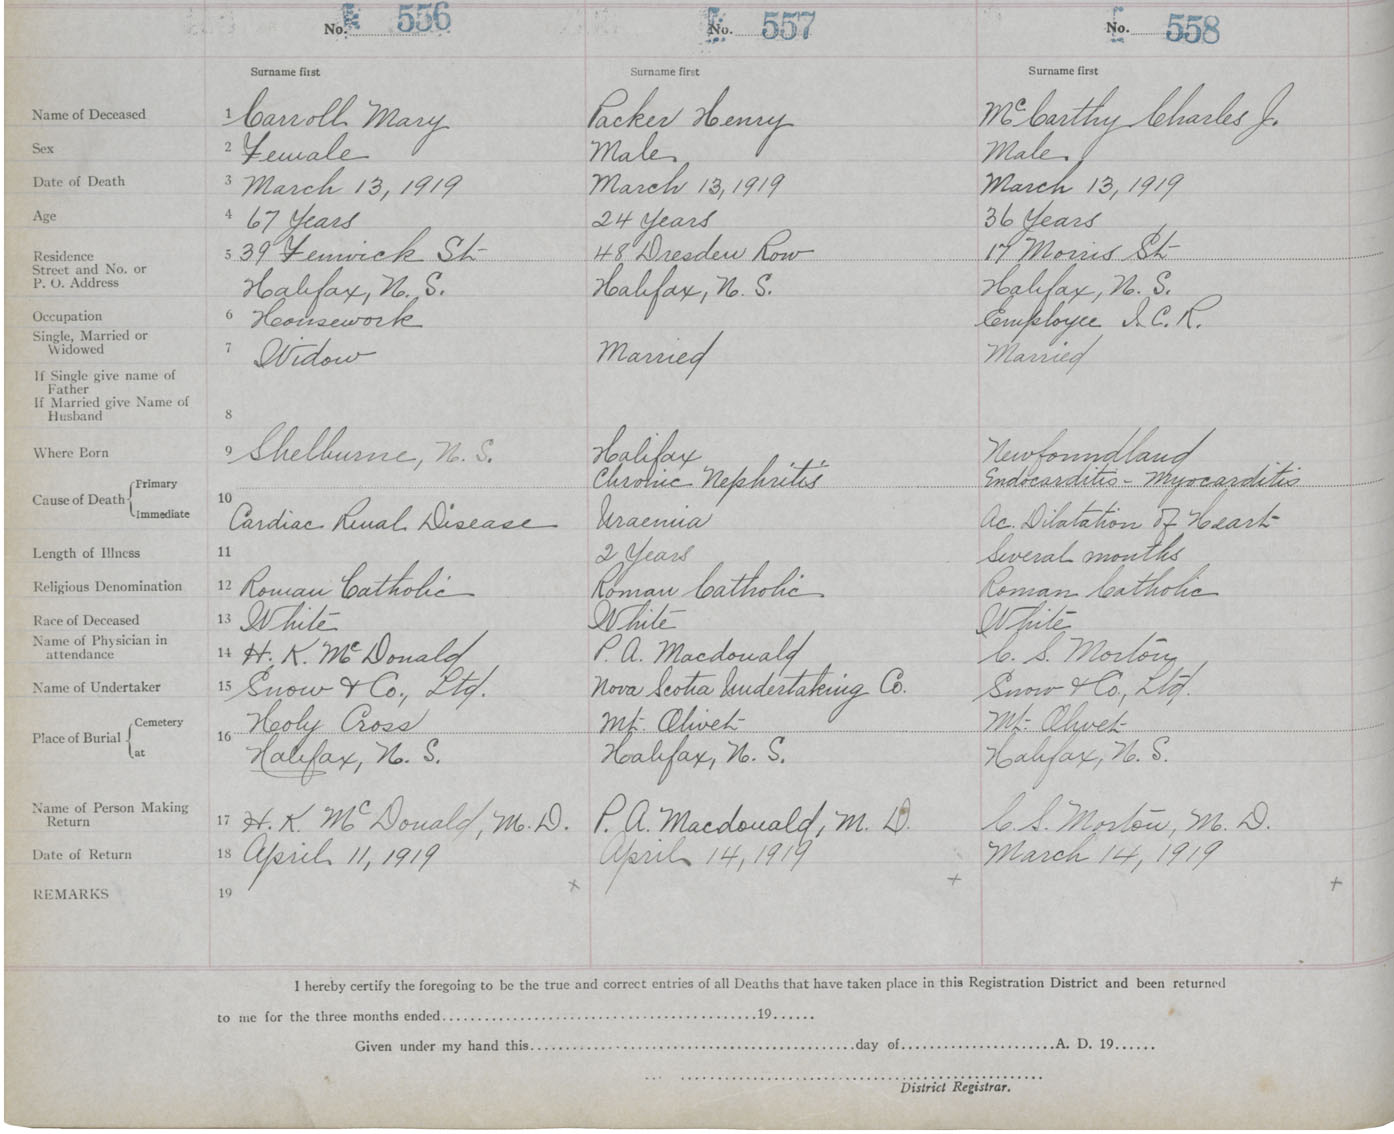 No. 556 No. 557 No. 558
Surname first Surname first Surname first
Name of Deceased 1 Carroll Mary Packer Henry McCarthy Charles J.
Sex 2 Female Male Male
Date of Death 3 March 13, 1919 March 13, 1919 March 13, 1919
Age 4 67 Years 24 Years 36 Years
Residence 5 39 Fenwick St 48 Dresden Row 17 Morris St
Street and No. or
P. O. Address Halifax, N. S. Halifax, N. S. Halifax, N. S.
Occupation 6 Housework Employee I. C. R.
Single, Married or
Widowed 7 Widow Married Married
If Single give name of
Father
If Married give Name of
Husband 8
Where Born 9 Shelburne, N. S. Halifax Newfoundland
Cause of Death { Primary Chronic Nephritis Endocarditis - Myocarditis
10 Immediate Cardiac Renal Disease Uraemia Ac. Dilatation of Heart
Length of Illness 11 2 Years Several months
Religious Denomination 12 Roman Catholic Roman Catholic Roman Catholic
Race of Deceased 13 White White White
Name of Physician in
attendance 14 H. K. McDonald P. A. Macdonald C. S. Morton
Name of Undertaker 15 Snow & Co., Ltd. Nova Scotia Undertaking Co. Snow & Co., Ltd.
Place of Burial { Cemetery Holy Cross Mt. Olivet Mt. Olivet
16 at Halifax, N. S. Halifax, N. S. Halifax, N. S.
Name of Person Making
Return 17 H. K. McDonald, M. D. P. A. Macdonald, M. D. C. S. Morton, M. D.
Date of Return 18 April 11, 1919 April 14, 1919 March 14, 1919
REMARKS 19 x + +
I hereby certify the foregoing to be the true and correct entries of all Deaths that have taken place in this Registration District and been returned
to me for the three months ended............19......
Given under my hand this............day of............A. D. 19......
District Registrar.